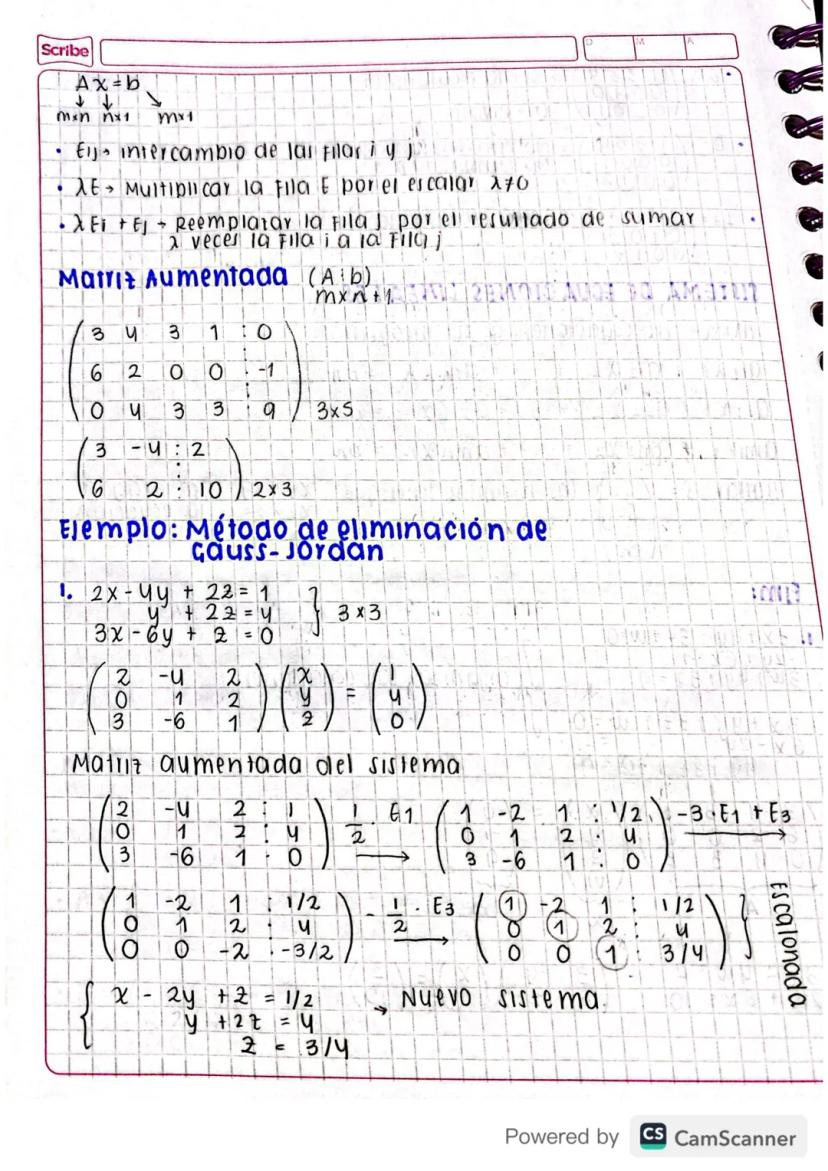 Scribe
D M A
Ax = b
↓ ↓ ↘
m×n n×1 m×1
• Eij → intercambio de las filas i y j
• λE → Multiplicar la fila E por el escalar λ≠0
• λEi + Ej → Reemplazar la fila j por el resultado de sumar
λ veces la fila i a la fila j
Matriz Aumentada (A ⋮ b)
m×n+1
3 4 3 1 : 0
6 2 0 0 : -1
0 4 3 3 : 9 3×5
3 -4 : 2
6 2 : 10 2×3
Ejemplo: Método de eliminación de
Gauss-Jordan
1. 2x - 4y + 2z = 1
y + 2z = 4 } 3×3
3x - 6y + z = 0
2 -4 2 x 1
0 1 2 y = 4
3 -6 1 z 0
Matriz aumentada del sistema
2 -4 2 : 1 1/2 · E1 1 -2 1 : 1/2 -3·E1 + E3
0 1 2 : 4 → 0 1 2 : 4 →
3 -6 1 : 0 3 -6 1 : 0
1 -2 1 : 1/2 -1/2 · E3 1 -2 1 : 1/2
0 1 2 : 4 → 0 1 2 : 4
0 0 -2 : -3/2 0 0 1 : 3/4
Escalonada
x - 2y + z = 1/2 → Nuevo sistema
y + 2z = 4
z = 3/4
Powered by CS CamScanner